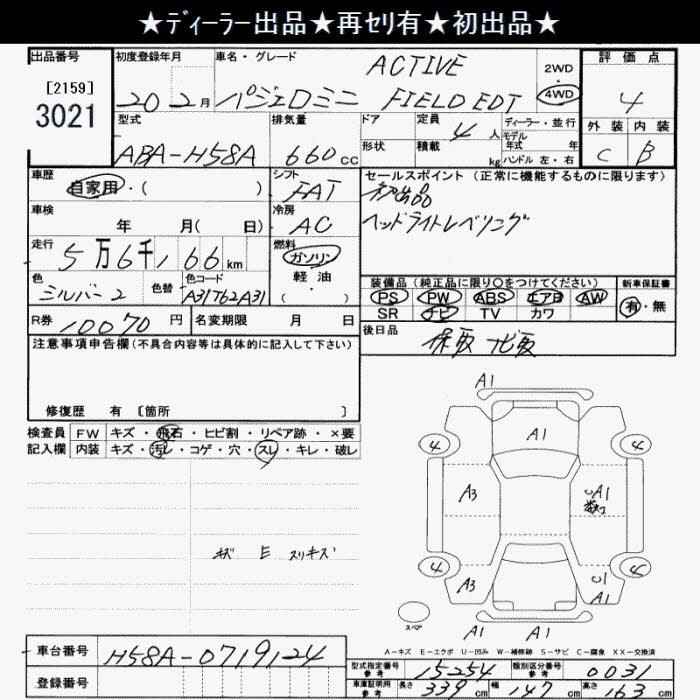 ★ディーラー出品★再セリ有★初出品★
出品番号 [2159] 3021
初度登録年月 20 2月
車名・グレード パジェロミニ ACTIVE FIELD EDT
2WD・4WD
評価点 4
外装 内装
C B
型式 ABA-H58A
排気量 660cc
ドア 形状
定員 4人
積載 kg
ディーラー・並行
モデル年式 年
ハンドル 左・右
車歴 自家用・( )
シフト FAT
セールスポイント (正常に機能するものに限ります)
初出品
ヘッドライトレベリング
車検 年 月( 日)
冷房 AC
走行 5万6千166km
燃料 ガソリン・軽油・
色 シルバー2
色替
色コード A31T62A31
装備品 (純正品に限り○をつけてください)
PS PW ABS エアB AW
SR ナビ TV カワ
新車保証書 有・無
R券 10070円
名変期限 月 日
後日品 保取 ナビ取
注意事項申告欄(不具合内容等は具体的に記入して下さい)
修復歴 有 [箇所 ]
検査員 FW キズ・飛石・ヒビ割・リペア跡・×要
記入欄 内装 キズ・汚レ・コゲ・穴・スレ・キレ・破レ
キズ E スリキズ
A1
A1
4 4
A3 A1
4 4
A3 C1
A1
A1 A1
スペア
A-キズ E-エクボ U-凹み W-補修跡 S-サビ C-腐食 XX-交換済
車台番号 H58A-0719124
登録番号
型式指定番号 参考 15254
類別区分番号 参考 0031
車庫証明用 参考 長さ 339cm 幅 147cm 高さ 163cm